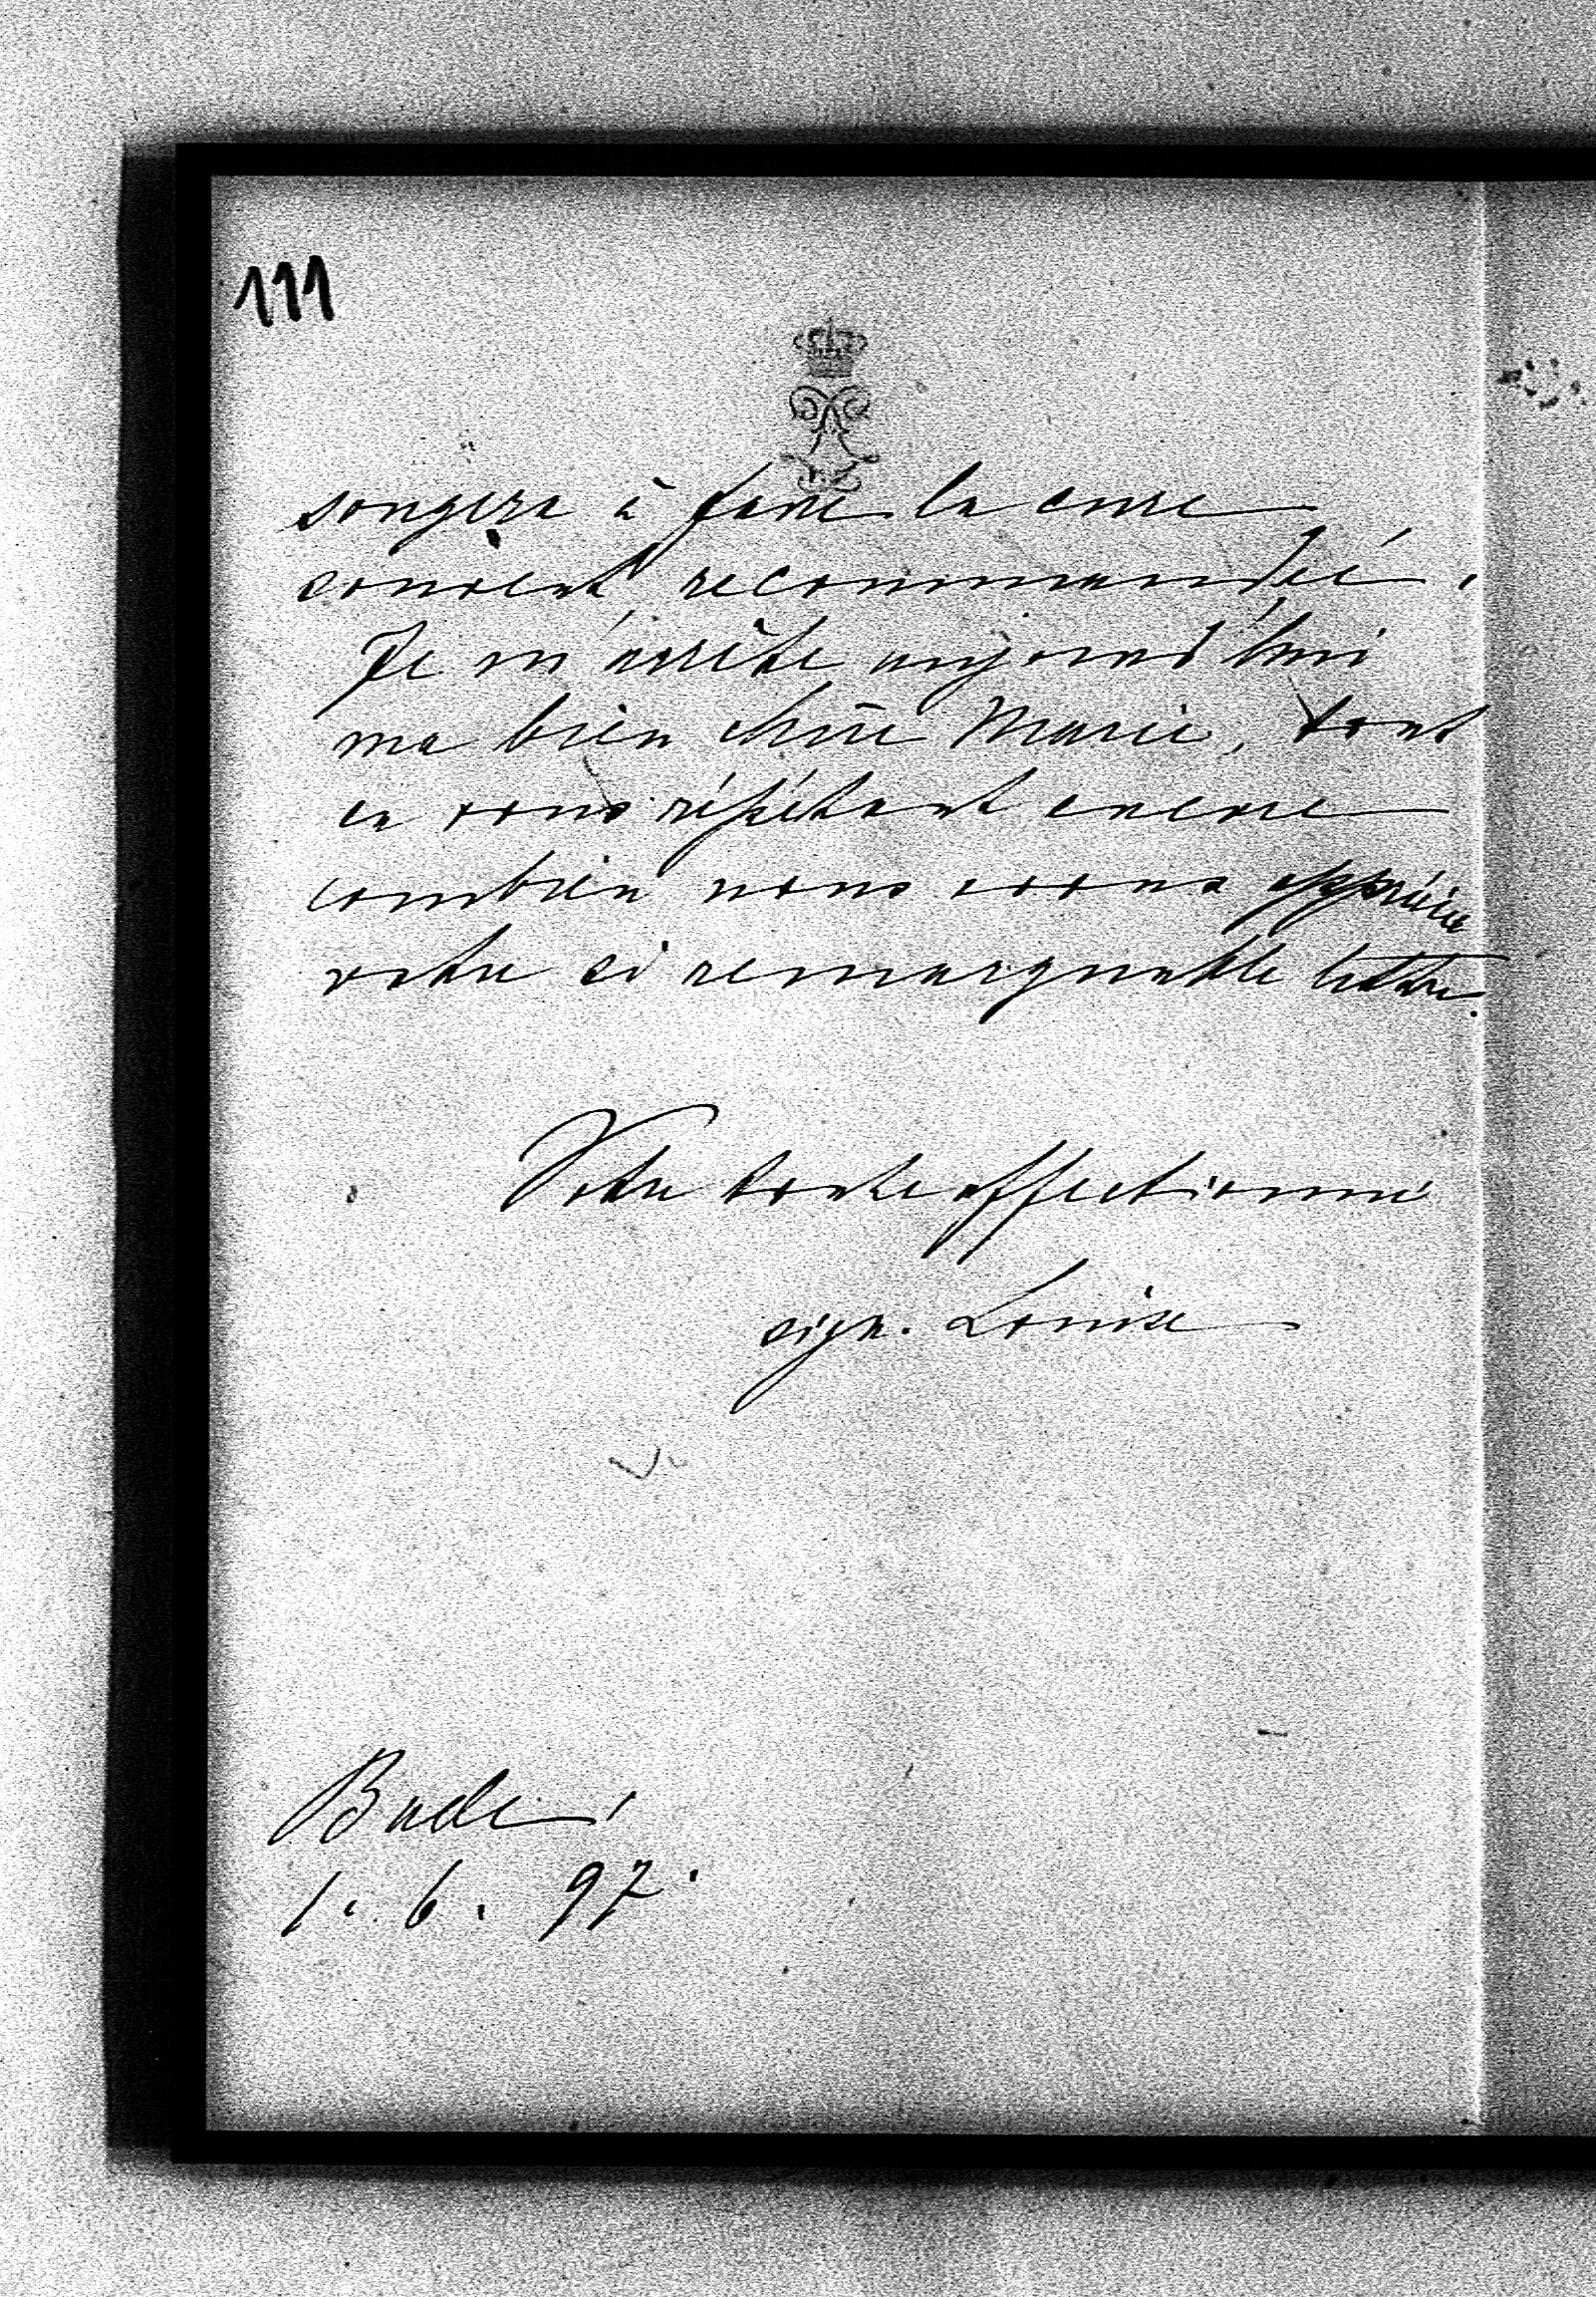 111
songera à faire la cure
souvent recommandée.
Je m'arrête aujourd'hui
ma bien chère Marie, tout
en vous répétant encore
combien nous avons apprécié
votre si remarquable lettre.
Votre toute affectionnée
sign. Louise
Bade
1. 6. 97.